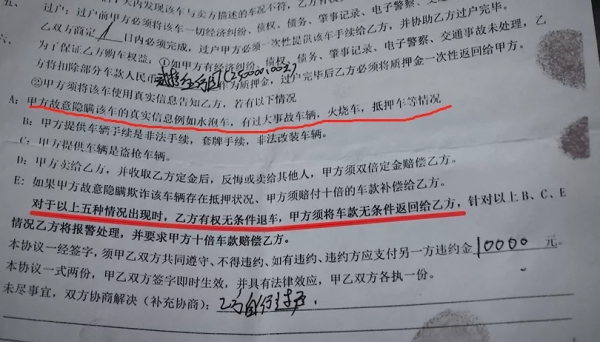 天内发现该车与卖方描述的车况不符,乙方有
过户:过户前甲方必须将该车一切经济纠纷、债权、债务、肇事记录、电子警察、
乙双方商定 日内必须完成,过户甲方必须一次性提供该车手续给乙方,并协助乙方过户完毕。
为了保证乙方购车权益:①如甲方有经济纠纷、债权、债务、肇事记录、电子警察、交通事故未处理,乙
方将扣除部分车款人民币 作为质押金,过户完毕后乙方必须将质押金一次性返回给甲方。
②甲方须将该车使用真实信息告知乙方,若有以下情况
A:甲方故意隐瞒该车的真实信息例如水泡车,有过大事故车辆,火烧车,抵押车等情况
B:甲方提供车辆手续是非法手续,套牌手续,非法改装车辆。
C:甲方提供车辆是盗抢车辆。
D:甲方卖给乙方,并收取乙方定金后,反悔或卖给其他人,甲方须双倍定金赔偿乙方。
E:如果甲方故意隐瞒欺诈该车辆存在抵押状况、甲方须赔付十倍的车款补偿给乙方。
对于以上五种情况出现时,乙方有权无条件退车,甲方须将车款无条件返回给乙方,针对以上 B、C、E
情况乙方将报警处理,并要求甲方十倍车款赔偿乙方。
本协议一经签字,须甲乙双方共同遵守、不得违约、如有违约、违约方应支付另一方违约金 10000 元。
本协议一式两份,甲乙双方签字即时生效,并具有法律效应,甲乙双方各执一份。
未尽事宜,双方协商解决(补充协商):乙方自行过户.